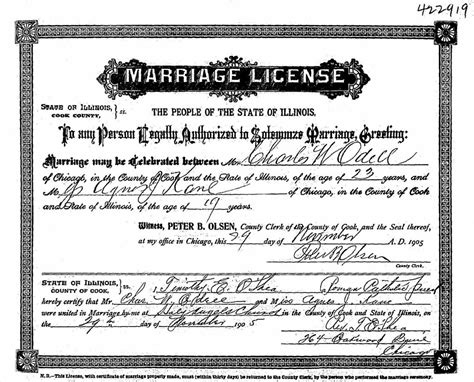 422919
MARRIAGE LICENSE
STATE OF ILLINOIS, COOK COUNTY, } ss. THE PEOPLE OF THE STATE OF ILLINOIS.
To any Person Legally Authorized to Solemnize Marriage, Greeting:
Marriage may be Celebrated between Mr. Charles W Odell
of Chicago, in the County of Cook and the State of Illinois, of the age of 23 years, and
M Agnes Kane of Chicago, in the County of Cook
and State of Illinois, of the age of 19 years.
Witness, PETER B. OLSEN, County Clerk of the County of Cook, and the Seal thereof,
at my office in Chicago, this 29 day of November A. D. 1905
Peter B Olsen
County Clerk.
STATE OF ILLINOIS, COUNTY OF COOK. } ss. I, Timothy E. O'Shea a Roman Catholic Priest
hereby certify that Mr. Chas. W. Odell and Miss Agnes J. Kane
were united in Marriage by me at Holy Angels Church in the County of Cook and State of Illinois, on
the 29th day of November 1905 Rev. T. E. O'Shea
264 Oakwood
Chicago
N. B.—This License, with certificate of marriage properly made, must (within thirty days) be returned to the County Clerk, by the person who performed the marriage ceremony.